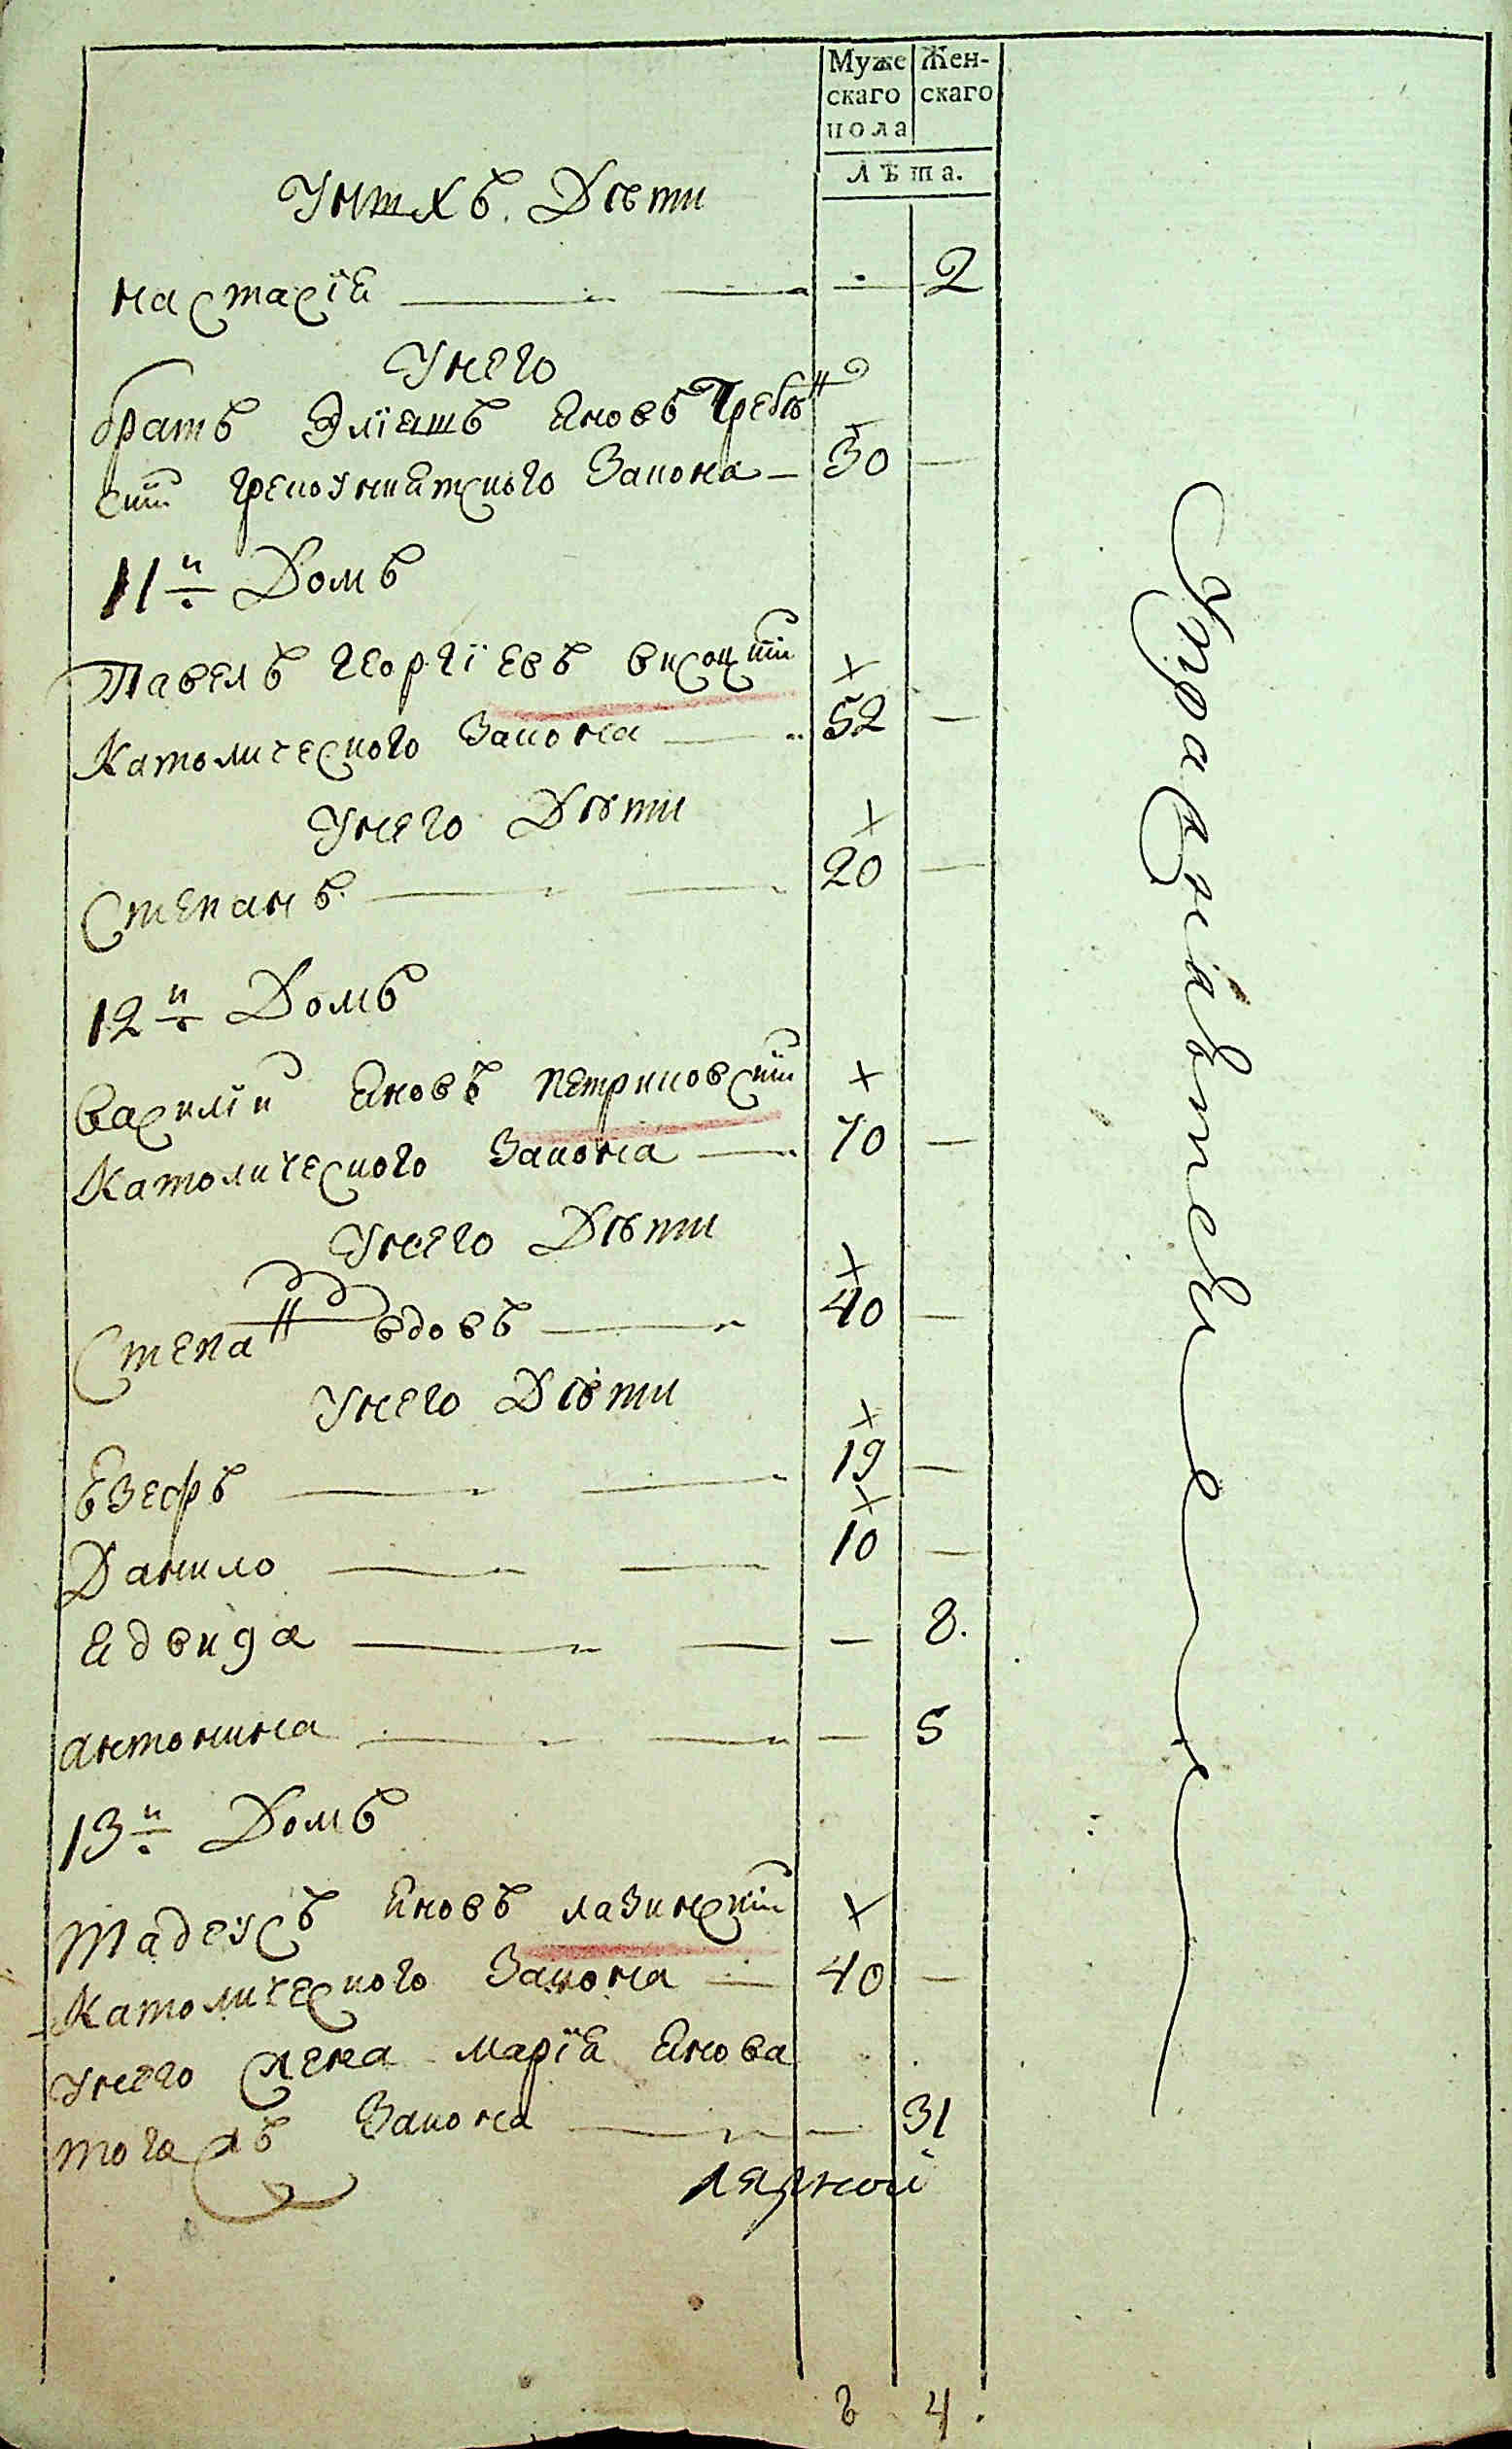 Муже Жен-
скаго скаго
пола
Лѣта.
Унихъ Дѣти
настасїя — 2
Унего
братъ Элїяшъ Яновъ Гребен
скїй грекоуниятского Закона — 30 —
11й Домъ
Павелъ Георгїевъ висоцкїй
Католического Закона — 52 —
Унего Дѣти
Степанъ — 20 —
12й Домъ
Василїй Яновъ петриковскїй
Католического Закона — 70 —
Унего Дѣти
Степан вдовъ — 40 —
Унего Дѣти
Езефъ — 19 —
Данило — 10 —
Ядвида — 8.
антонина — 5
13й Домъ
Тадеусъ Яновъ лазинскїй
Католического Закона — 40 —
унего жена марїя Янова
тогажъ Закона — 31
8 4.